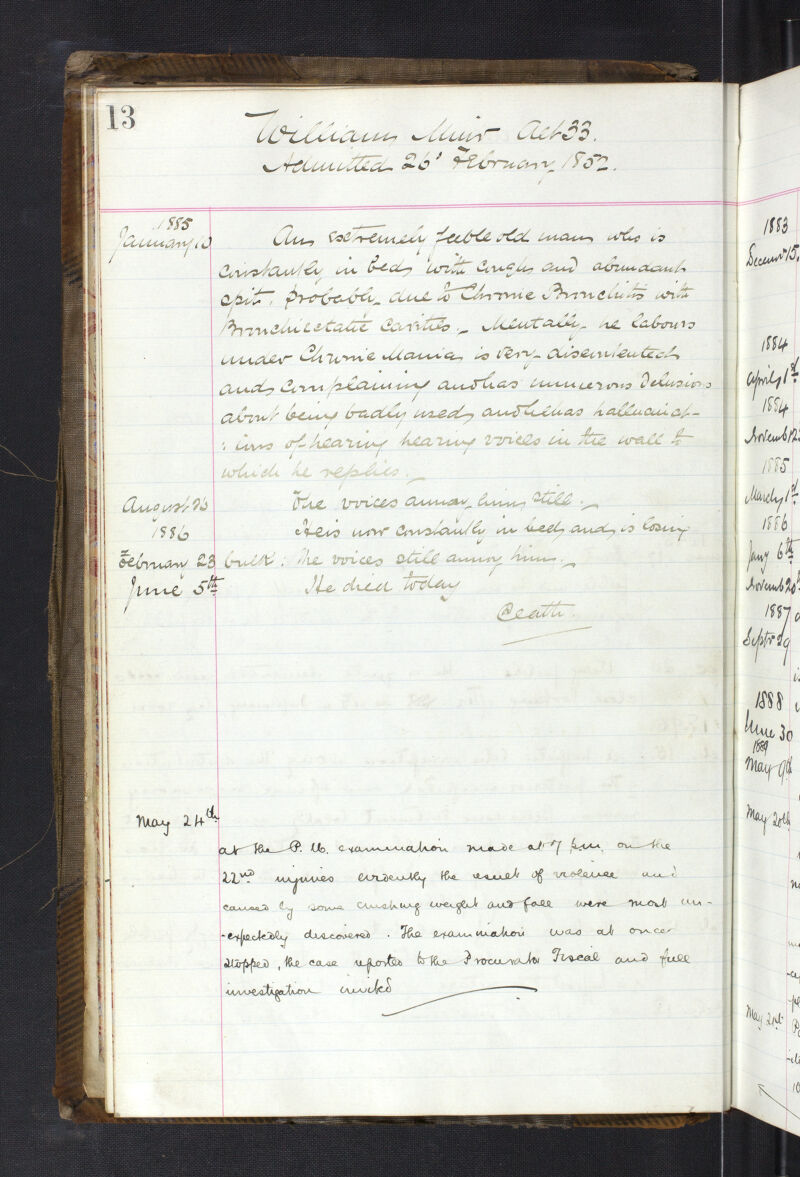 13
William Muir Aet 33.
Admitted 26' February 185
1885
January 10 An extremely feeble old man who is
constantly in bed with cough and abundant
spit, probably due to Chronic Bronchitis with
Bronchiectatic Cavities. Mentally he labours
under Chronic Mania is very discontented
and complaining and has numerous Delusions
about being badly used, and he has hallucinat-
:ions of hearing hearing voices in the wall to
which he replies.
August 26 The voices annoy him still.
1886 He is now constantly in bed and is losing
February 23 bulk: The voices still annoy him.
June 5th He died today
Death.
May 24th
at the P. M. examination made at 7 p.m. on the
22nd injuries evidently the result of violence and
caused by some crushing weight and fall were most un-
-expectedly discovered. The examination was at once
stopped, the case reported to the Procurator Fiscal and full
investigation invited
1883
Decemr 15.
1884
April 1st
1884
Novemb 12
1885
March 1st
1886
Jany 6th
Novemb 20th
1887
Septr 29
1888
June 30
1889
May 9th
May 20th
May 21st